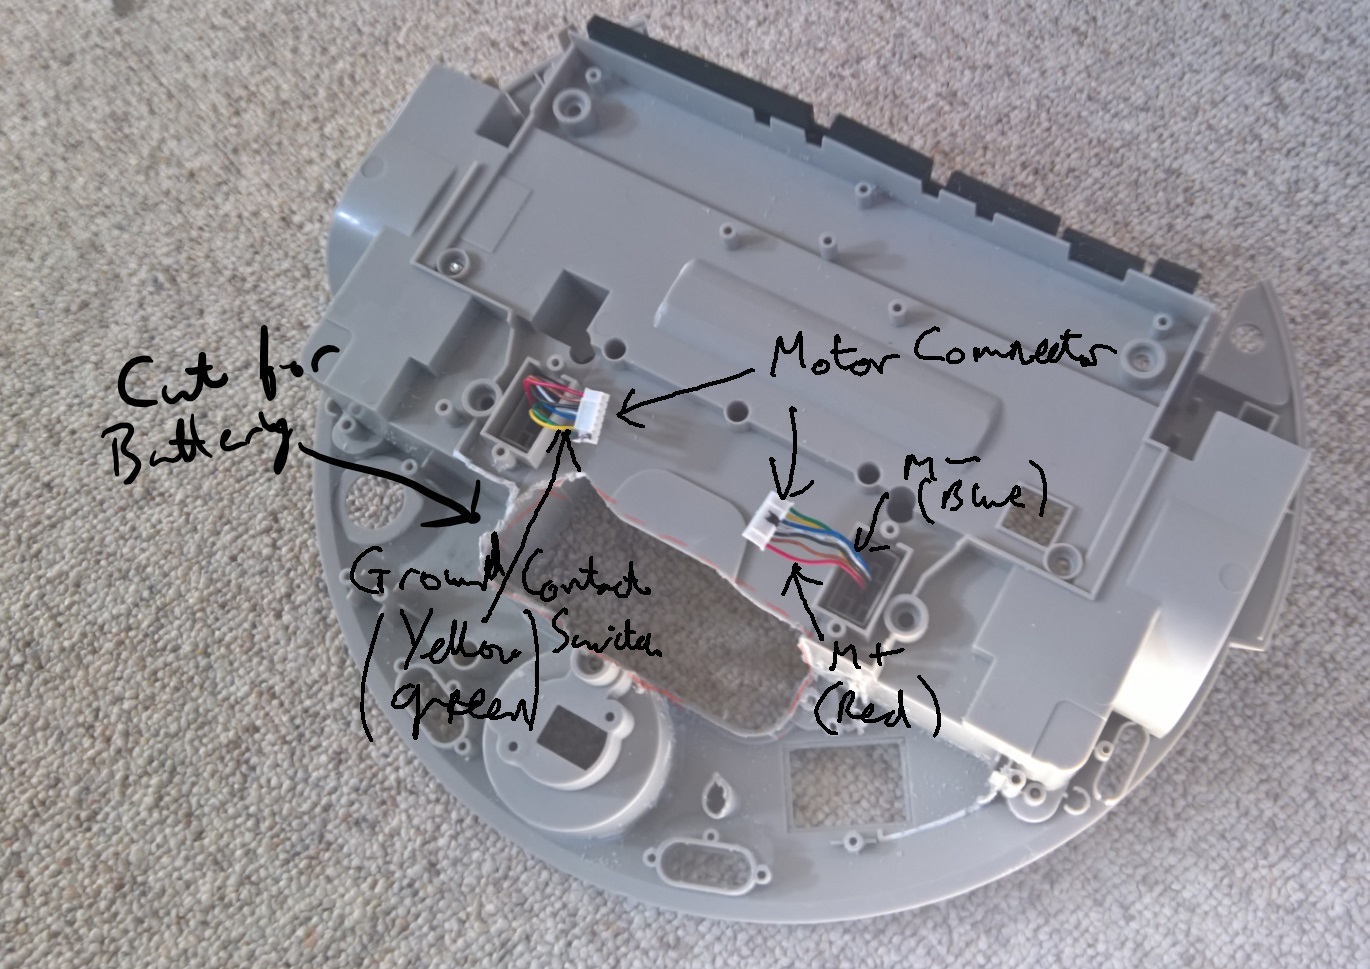 Cut for
Battery
Motor Connector
M-
(Blue)
Ground Contact
Switch
(Yellow
green)
M+
(Red)